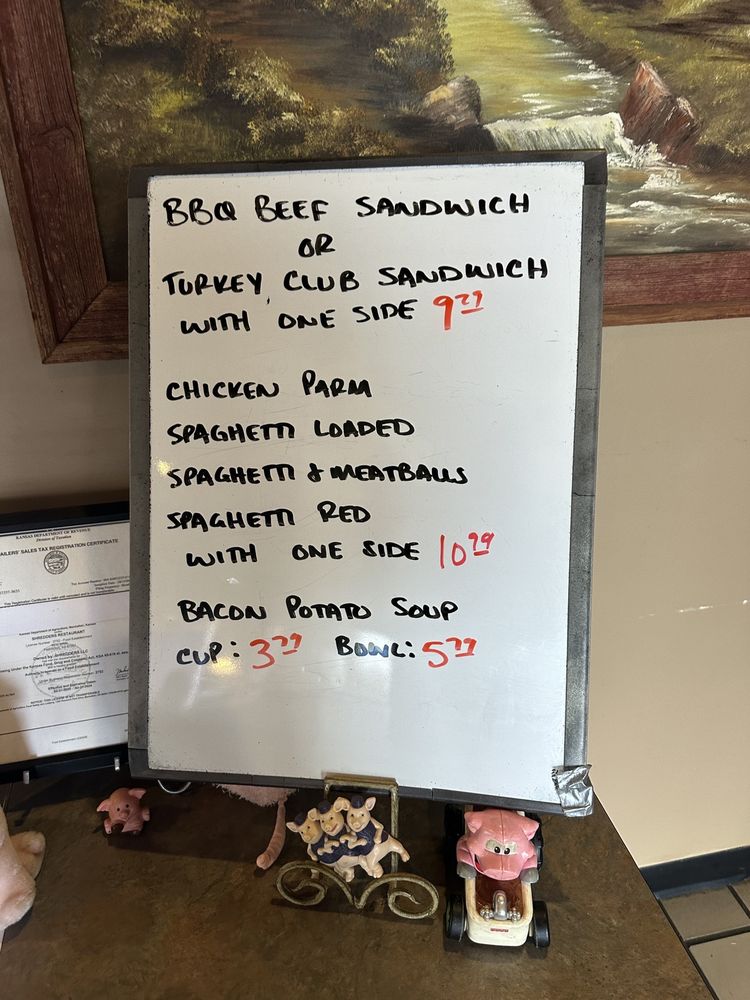 BBQ BEEF SANDWICH
OR
TURKEY CLUB SANDWICH
WITH ONE SIDE 9 29
CHICKEN PARM
SPAGHETTI LOADED
SPAGHETTI & MEATBALLS
SPAGHETTI RED
WITH ONE SIDE 10 99
BACON POTATO SOUP
CUP: 3 79 BOWL: 5 79
KANSAS DEPARTMENT OF REVENUE
Division of Taxation
AILERS' SALES TAX REGISTRATION CERTIFICATE
SHREDDERS RESTAURANT
Owned by: SHREDDERS LLC